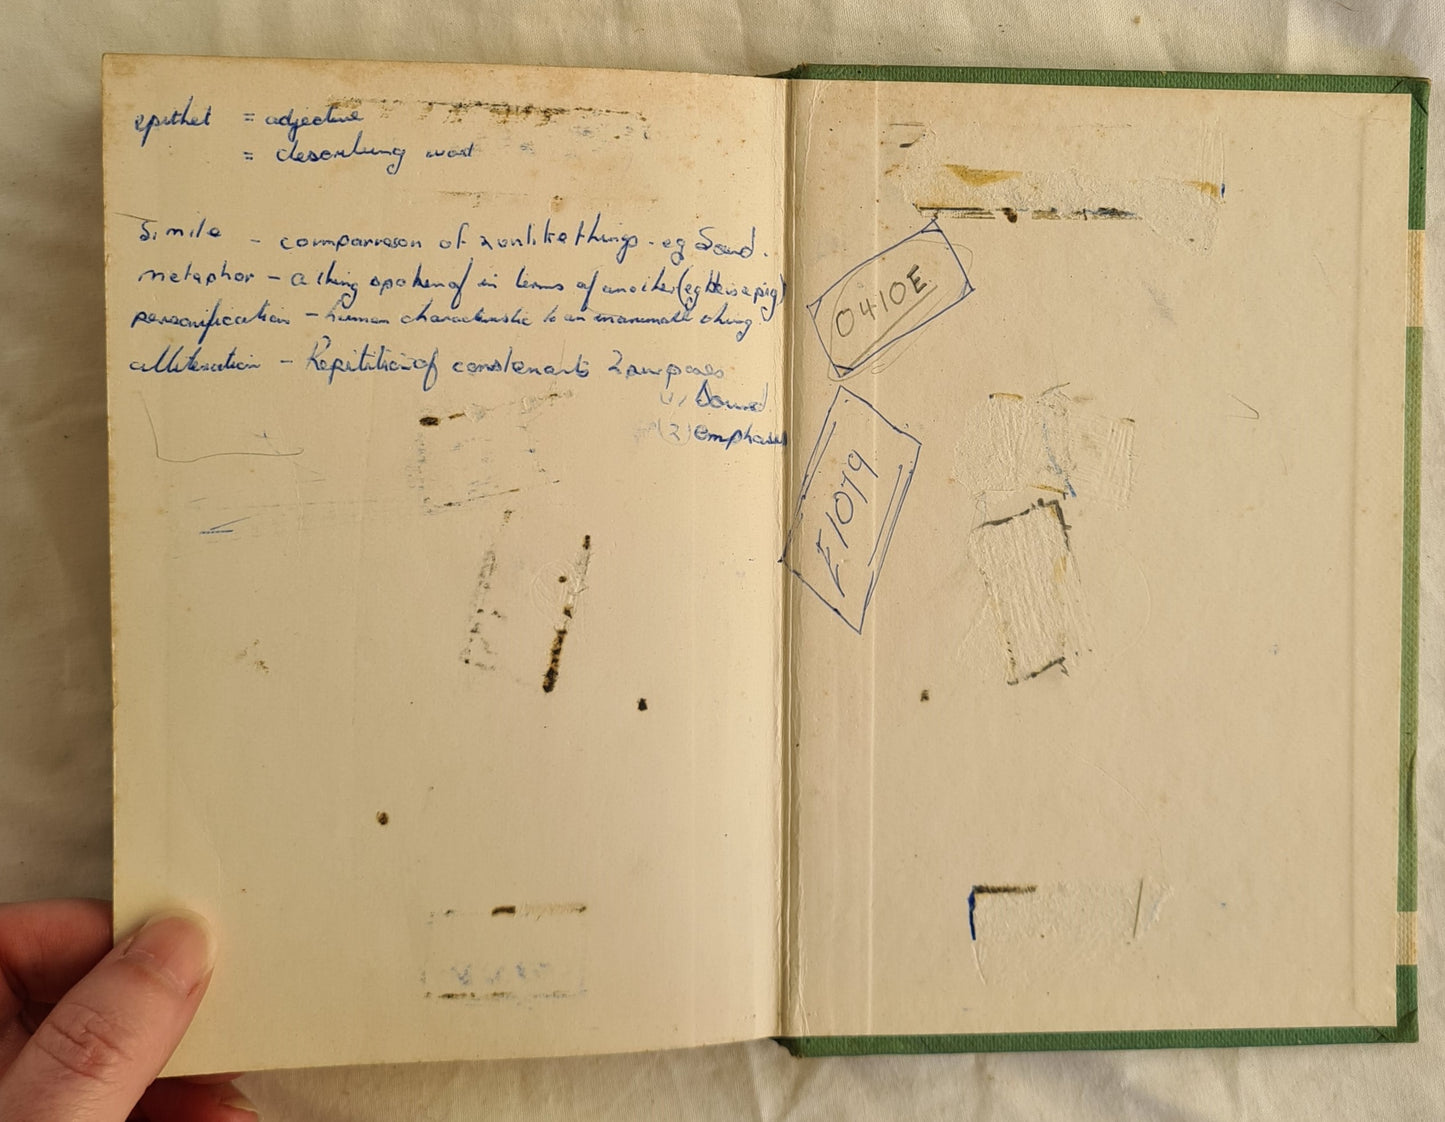 epithet = adjective
= describing word
Simile - comparreson of 2 unlike things - eg Sound.
metaphor - a thing spoken of in terms of another (eg He is a pig)
personification - human characteristic to an inanimate thing.
alliteration - Repitition of constenants 2 purposes
(1) Sound
(2) emphasis
0410E
E1079